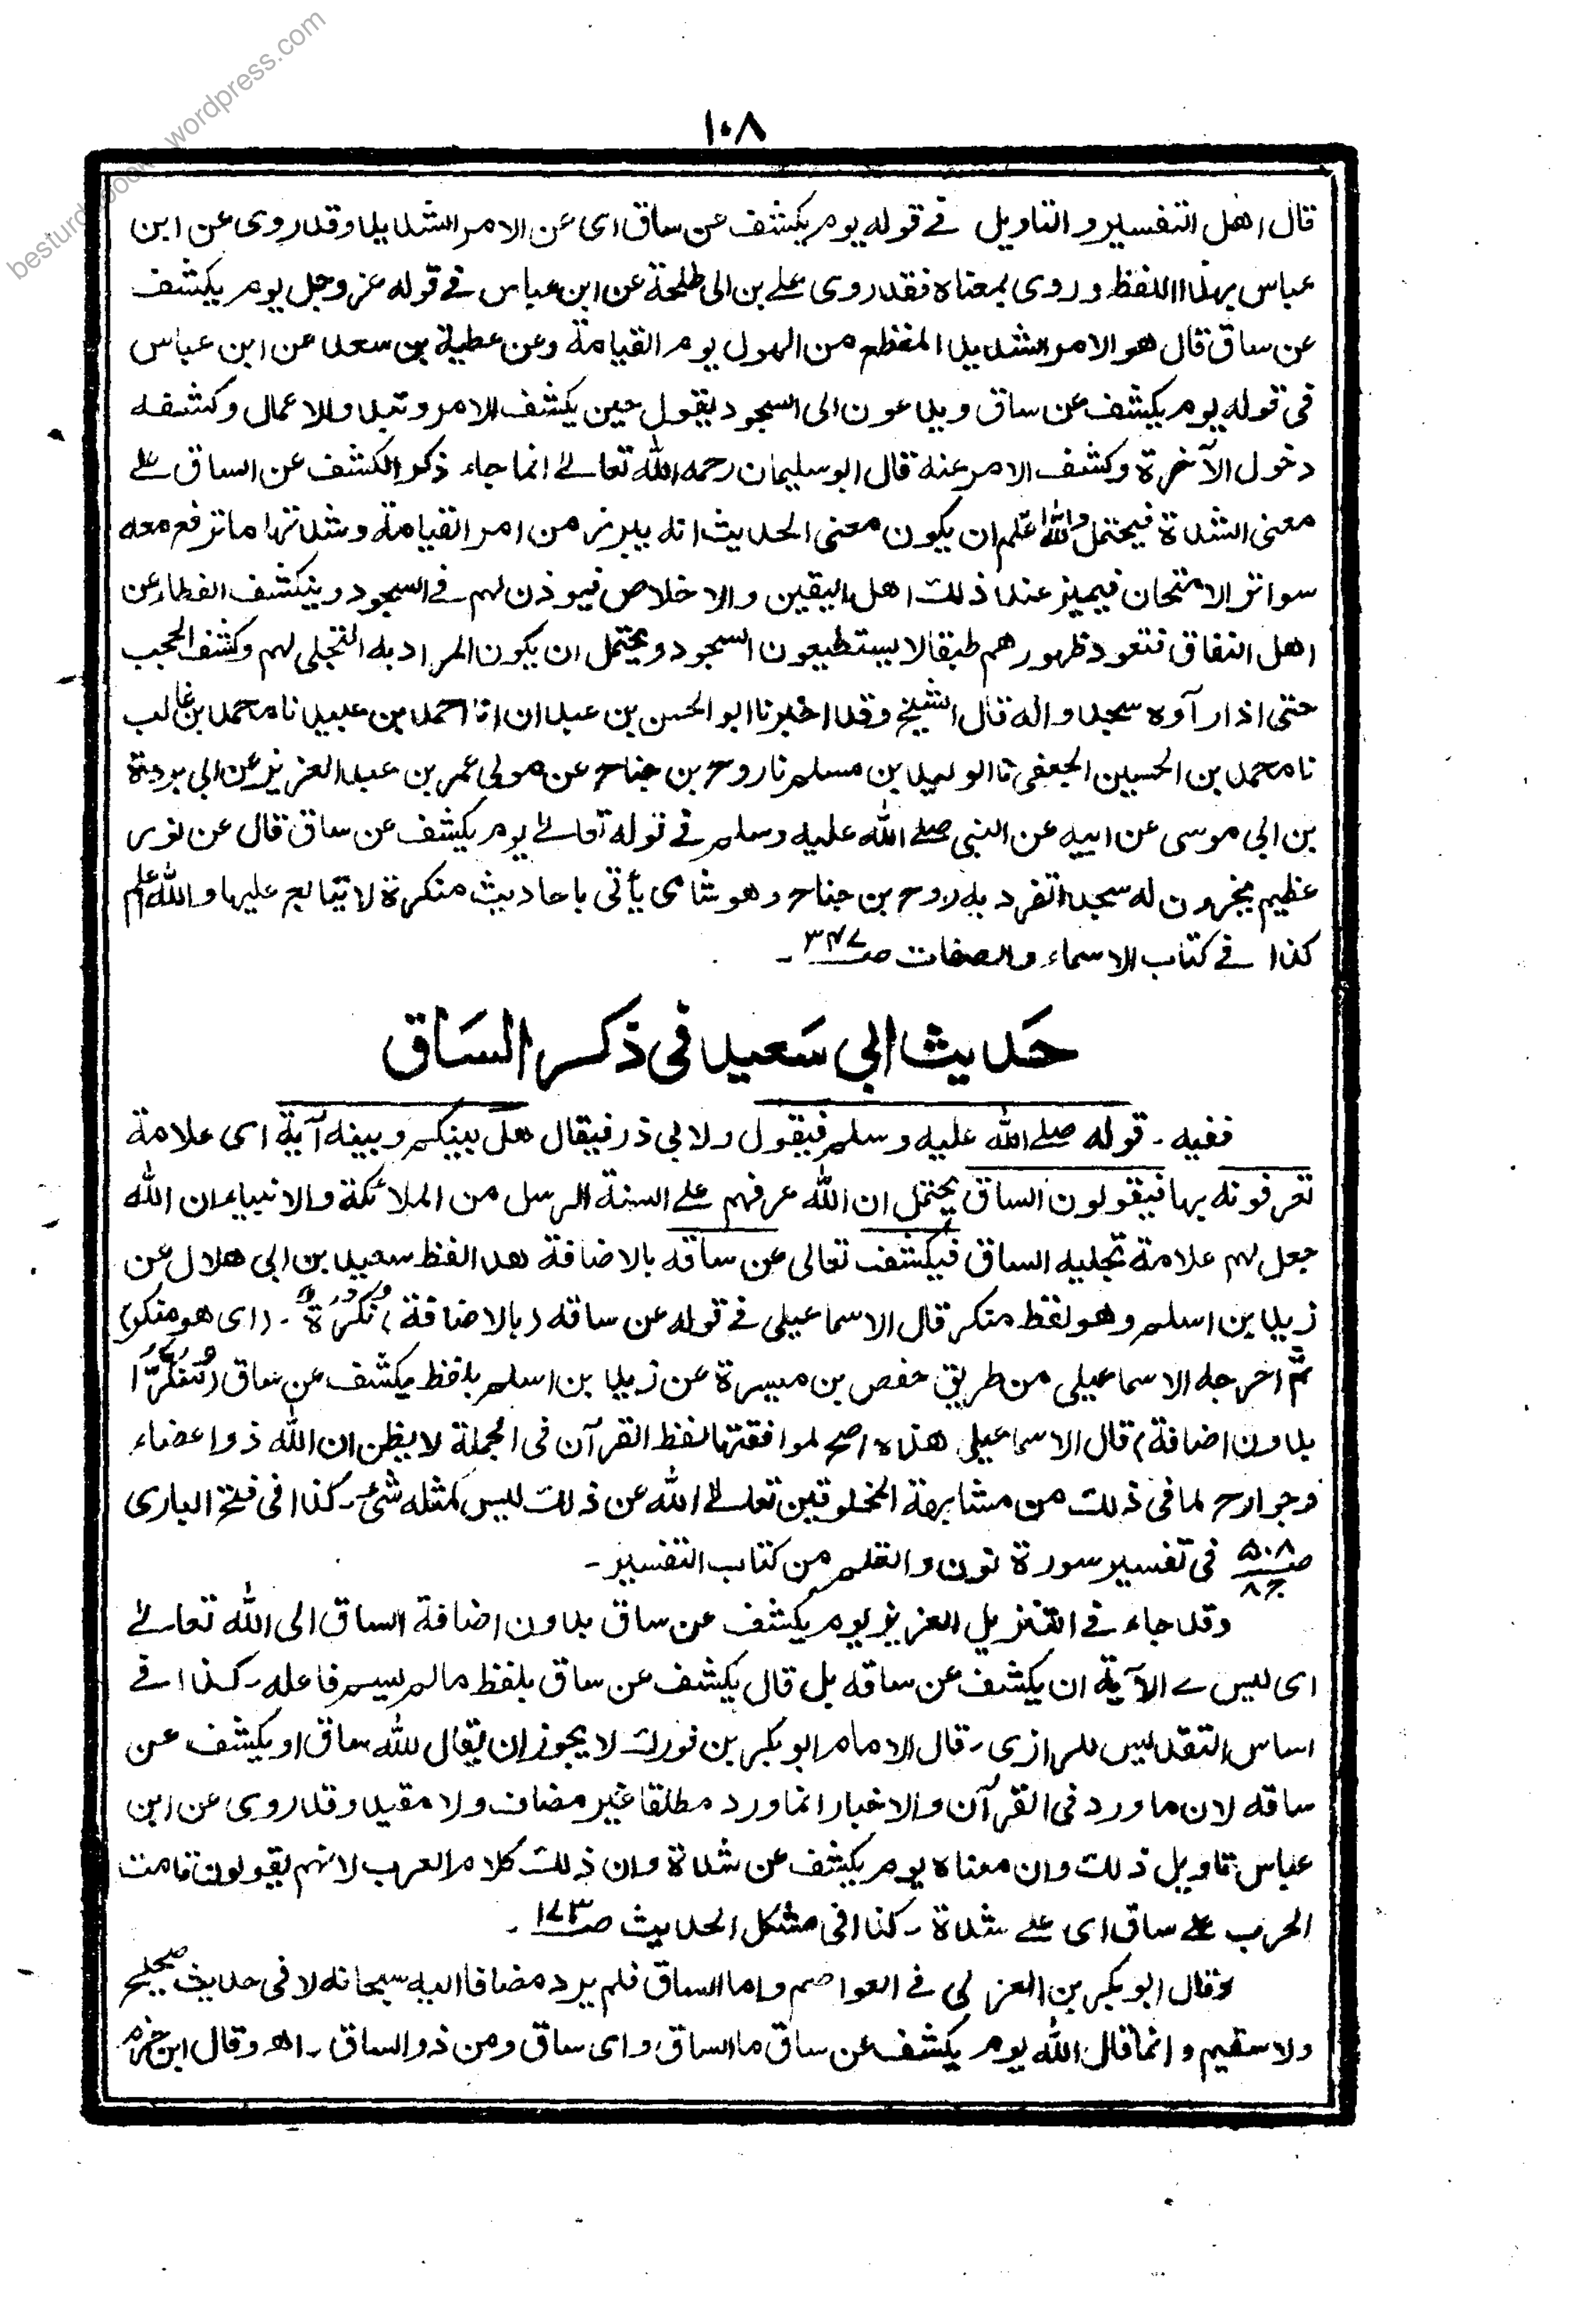 besturdubooks.wordpress.com
١٠٨
قال اهل التفسير و التاويل في قوله يوم يكشف عن ساق اى عن الامر الشديد وقد روى عن ابن
عباس بهذا اللفظ و روى بمعناه فقد روى على بن ابى طلحة عن ابن عباس في قوله عز وجل يوم يكشف
عن ساق قال هو الامر الشديد المفظع من الهول يوم القيامة وعن عطية بن سعد عن ابن عباس
فى قوله يوم يكشف عن ساق ويدعون الى السجود يقول حين يكشف الامر وتبدو الاعمال وكشفه
دخول الآخرة وكشف الامر عنه قال ابو سليمان رحمه الله تعالى انما جاء ذكر الكشف عن الساق على
معنى الشدة فيحتمل والله اعلم ان يكون معنى الحديث انه يبرز من امر القيامة وشدتها ما ترفع معه
سواتر الامتحان فيميز عند ذلك اهل اليقين والاخلاص فيوذن لهم في السجود وينكشف الغطاء عن
اهل النفاق فتعود ظهورهم طبقا لا يستطيعون السجود ويحتمل ان يكون المراد به التجلى لهم وكشف الحجب
حتى اذا رآوه سجدوا له قال الشيخ وقد اخبرنا ابو الحسن بن عبدان انا احمد بن عبيد نا محمد بن غالب
نا محمد بن الحسين الجعفى نا الوليد بن مسلم نا روح بن جناح عن مولى عمر بن عبد العزيز عن ابى بردة
بن ابى موسى عن ابيه عن النبى صلى الله عليه وسلم في قوله تعالى يوم يكشف عن ساق قال عن نور
عظيم يخرون له سجدا تفرد به روح بن جناح وهو شامى يأتى باحاديث منكرة لا يتابع عليها والله اعلم
كذا في كتاب الاسماء والصفات صـ٣٤٧ـ
حَديث ابى سَعيد فى ذكر السَاق
ففيه ـ قوله صلى الله عليه وسلم فيقول ولابى ذر فيقال هل بينكم وبينه آية اى علامة
تعرفونه بها فيقولون الساق يحتمل ان الله عرفهم على السنة الرسل من الملائكة والانبياء ان الله
جعل لهم علامة تجليه الساق فيكشف تعالى عن ساقه بالاضافة هذا لفظ سعيد بن ابى هلال عن
زيد بن اسلم وهو لفظ منكر قال الاسماعيلى في قوله عن ساقه (بالاضافة) نُكرَةٌ ـ (اى هو منكر)
ثمّ اخرجه الاسماعيلى من طريق حفص بن ميسرة عن زيد بن اسلم بلفظ يكشف عن ساق (مُنكَّرًا
بدون اضافة) قال الاسماعيلى هذه اصح لموافقتها لفظ القرآن فى الجملة لا يظن ان الله ذو اعضاء
وجوارح لما فى ذلك من مشابهة المخلوقين تعالى الله عن ذلك ليس كمثله شئ ـ كذا فى فتح البارى
صـ٥٠٨ ج٨ فى تفسير سورة نون والقلم من كتاب التفسير ـ
وقد جاء في التنزيل العزيز يوم يكشف عن ساق بدون اضافة الساق الى الله تعالى
اى ليس في الآية ان يكشف عن ساقه بل قال يكشف عن ساق بلفظ مالم يسم فاعله ـ كذا في
اساس التقديس للرازى ـ قال الامام ابو بكر بن فورك لا يجوز ان يقال لله ساق او يكشف عن
ساقه لان ما ورد فى القرآن والاخبار انما ورد مطلقا غير مضاف ولا مقيد وقد روى عن ابن
عباس تاويل ذلك وان معناه يوم يكشف عن شدة وان ذلك كلام العرب لانهم يقولون قامت
الحرب على ساق اى على شدة ـ كذا فى مشكل الحديث صـ١٧٣ـ
وقال ابو بكر بن العربى في العواصم واما الساق فلم يرد مضافا اليه سبحانه لا فى حديث صحيح
ولا سقيم وانما قال الله يوم يكشف عن ساق ما الساق واى ساق ومن ذو الساق ـ اهـ وقال ابن حزم